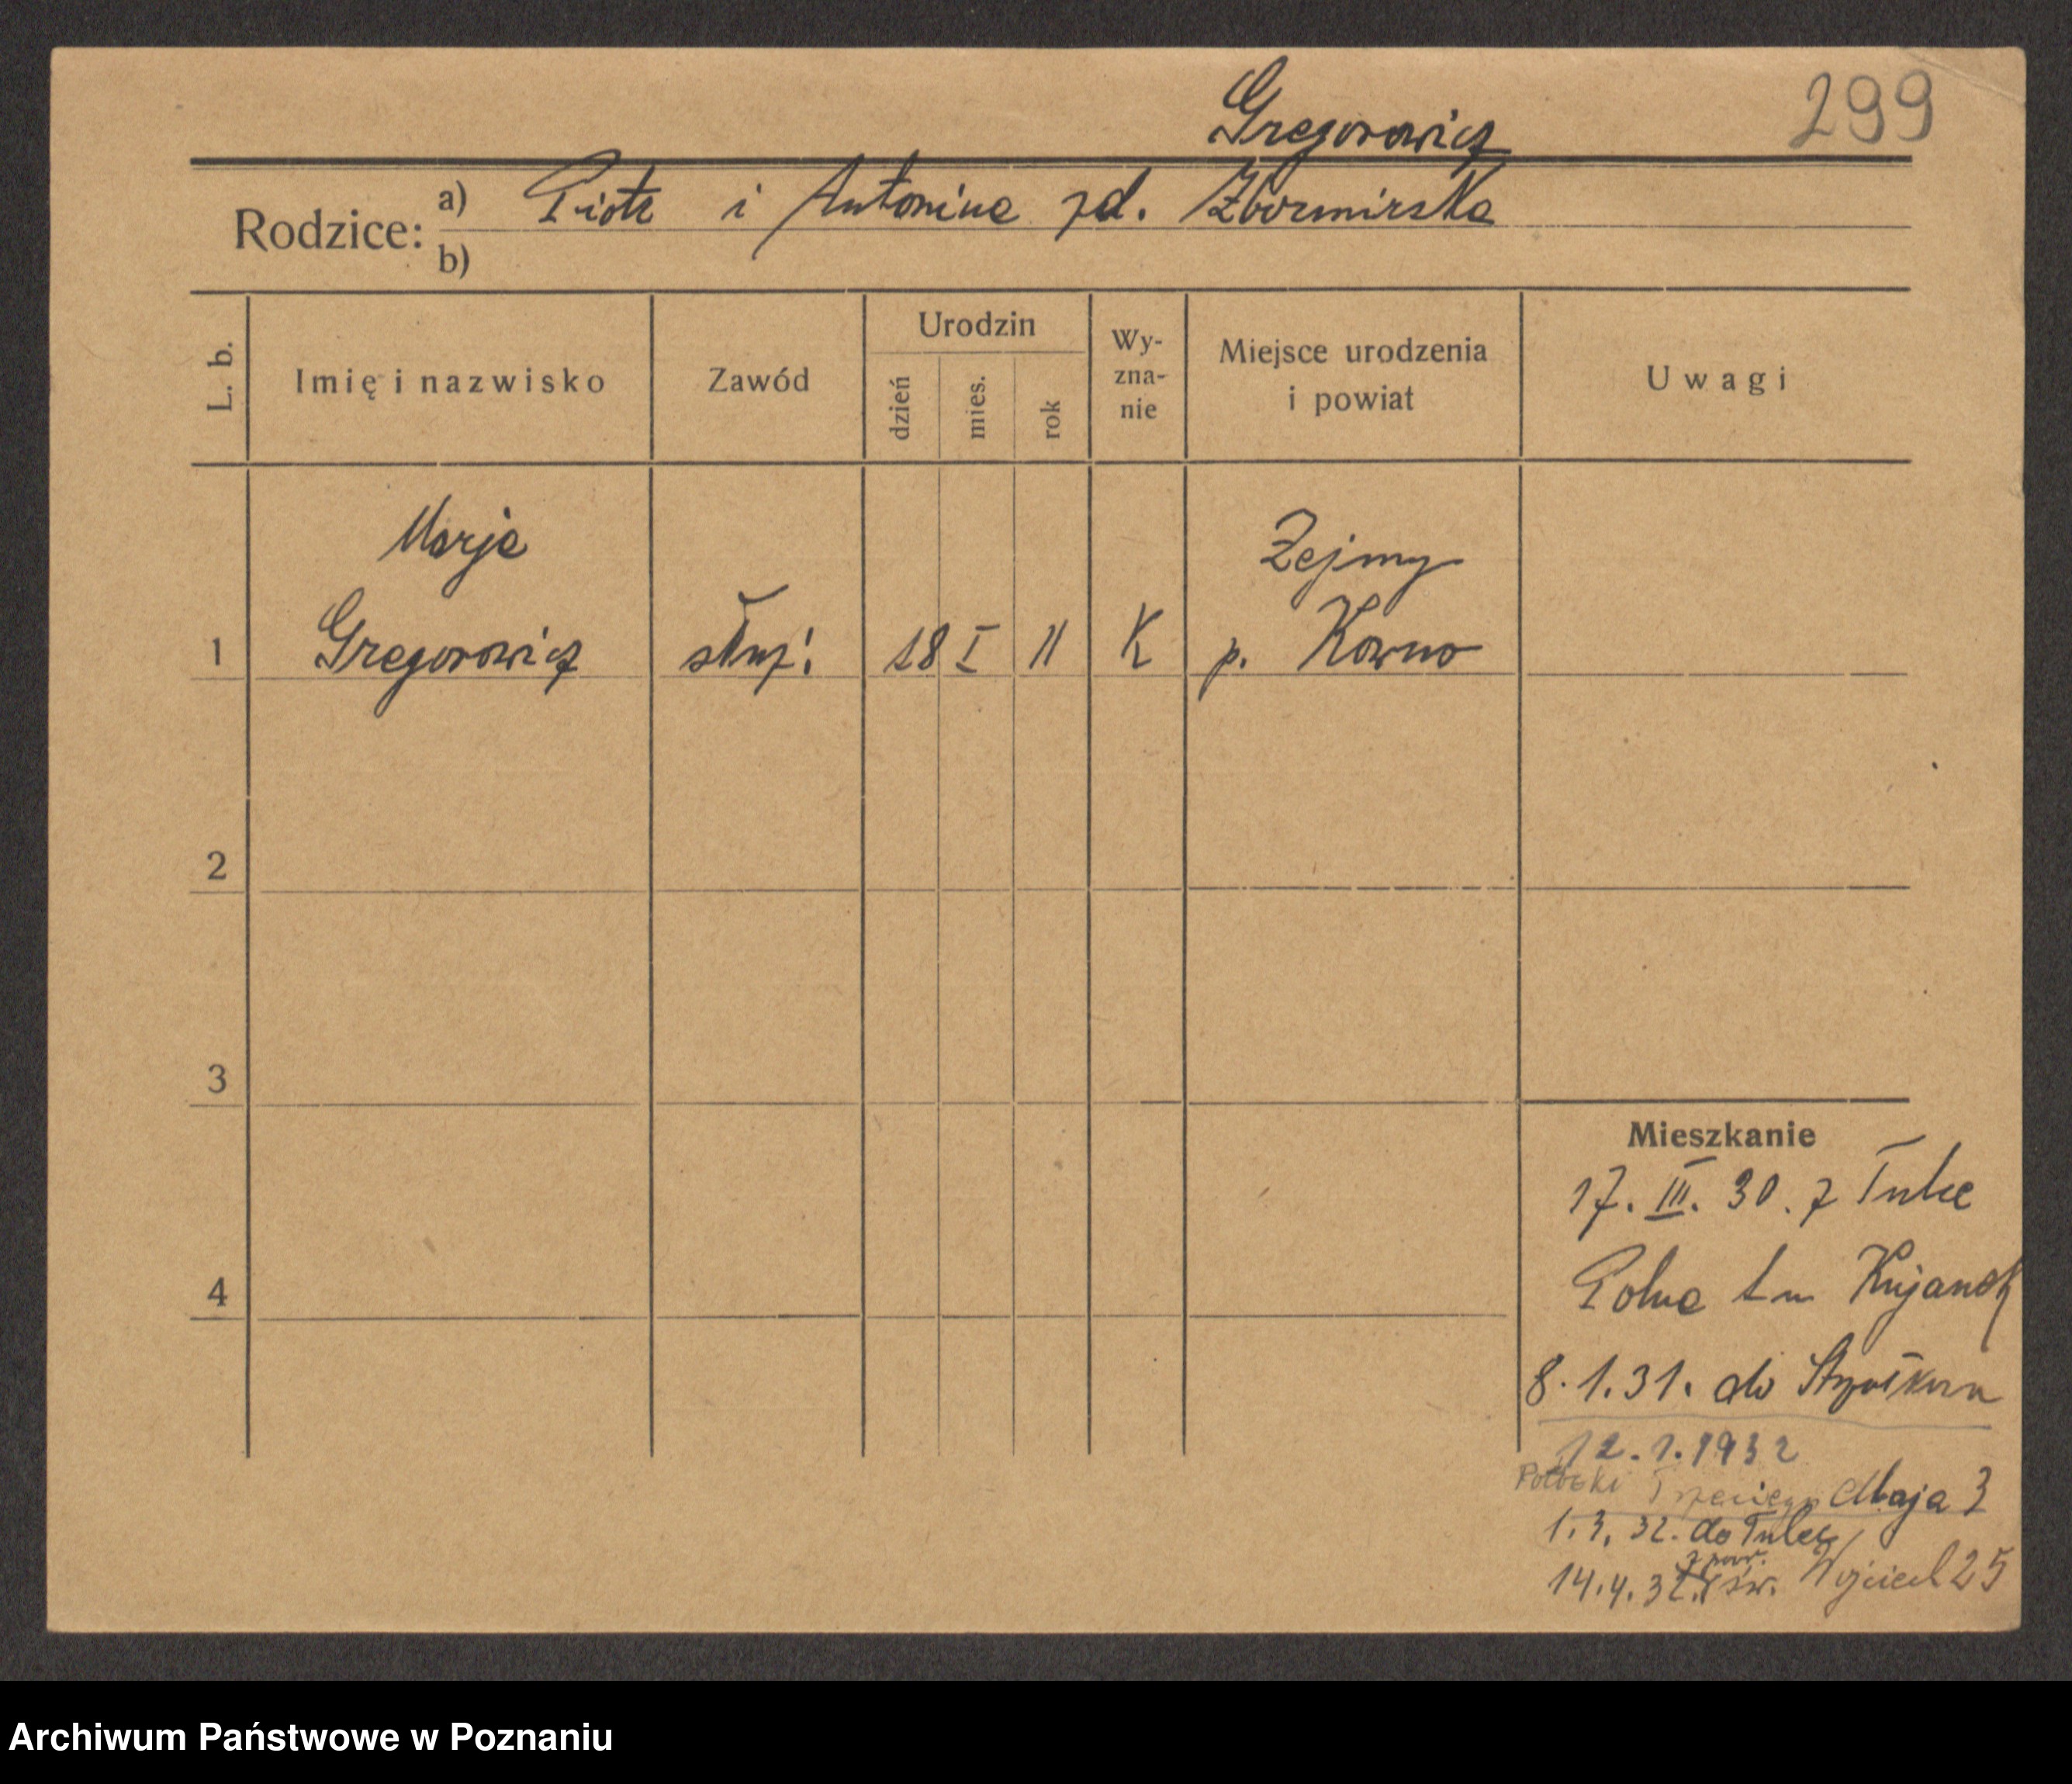 Gregorowicz
299
Rodzice: a) Piotr i Antonina zd.
b)
L. b.
Imię i nazwisko
Zawód
Urodzin
dzień
mies.
rok
Wy-
zna-
nie
Miejsce urodzenia
i powiat
Uwagi
Marja
Żejmy
1 Gregorowicz służ. 18 I 11 K p. Kowno
2
3
4
Mieszkanie
17. III. 30. z Tulce
Polna
8.1.31. do
12.1.1932
Potocki Trzeciego Maja 3
1.3.32. do Tulec
z pow.
14.4.32. św. Wojciech 25
Archiwum Państwowe w Poznaniu